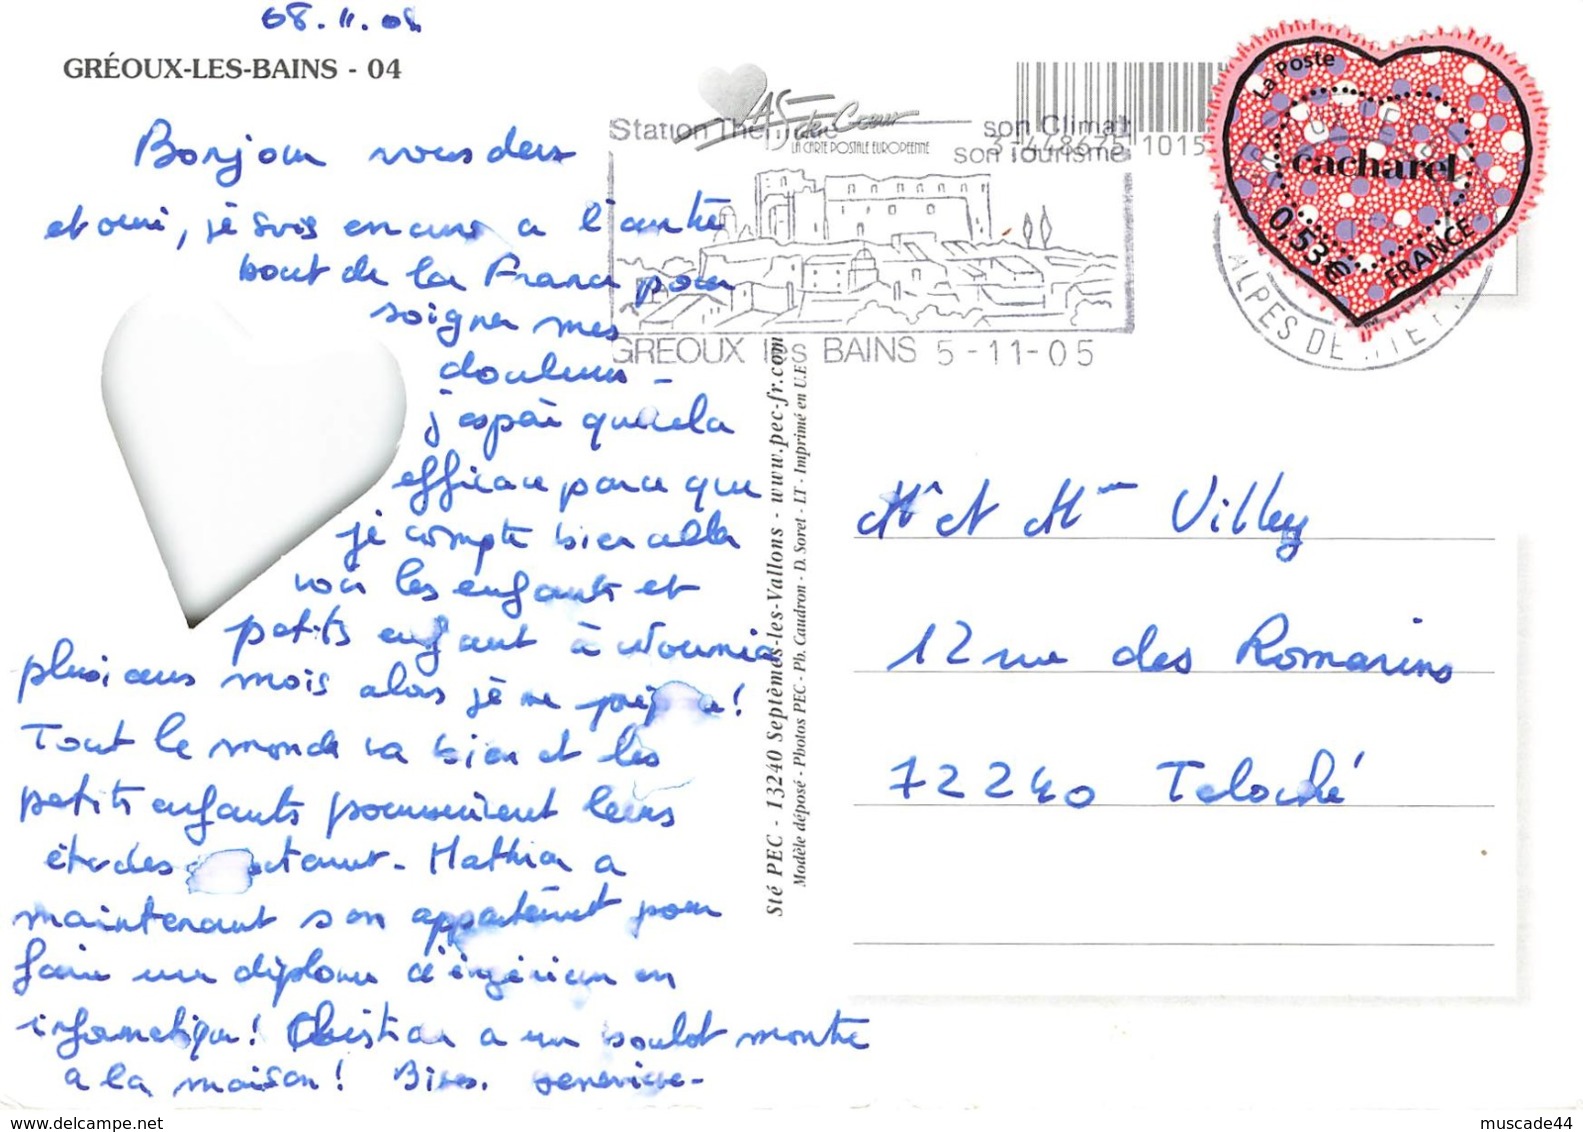 08.11.05
GRÉOUX-LES-BAINS - 04
Bonjour vous deux
et oui, je suis encore a l'autre
bout de la France pour
soigner mes
douleurs -
j'espère que cela
efficace parce que
je compte bien aller
voir les enfants et
petits enfant à
plusieurs mois alors je me prépare!
Tout le monde va bien et les
petits enfants poursuivent leurs
études Mathieu a
maintenant son appartement pour
faire un diplome d'ingénieur en
informatique! Christian a un boulot monte
a la maison! Bises. Geneviève-
AS de Cœur
LA CARTE POSTALE EUROPÉENNE
Station Thermale
son Climat
son Tourisme
3 448675 1015
GREOUX les BAINS 5-11-05
La Poste
cacharel
0,53€
FRANCE
ALPES DE
Sté PEC - 13240 Septèmes-les-Vallons - www.pec-fr.com
Modèle déposé - Photos PEC - Ph. Caudron - D. Soret - LT - Imprimé en U.E.
Mr et Mme Villey
12 rue des Romarins
72240 Teloché
muscade44